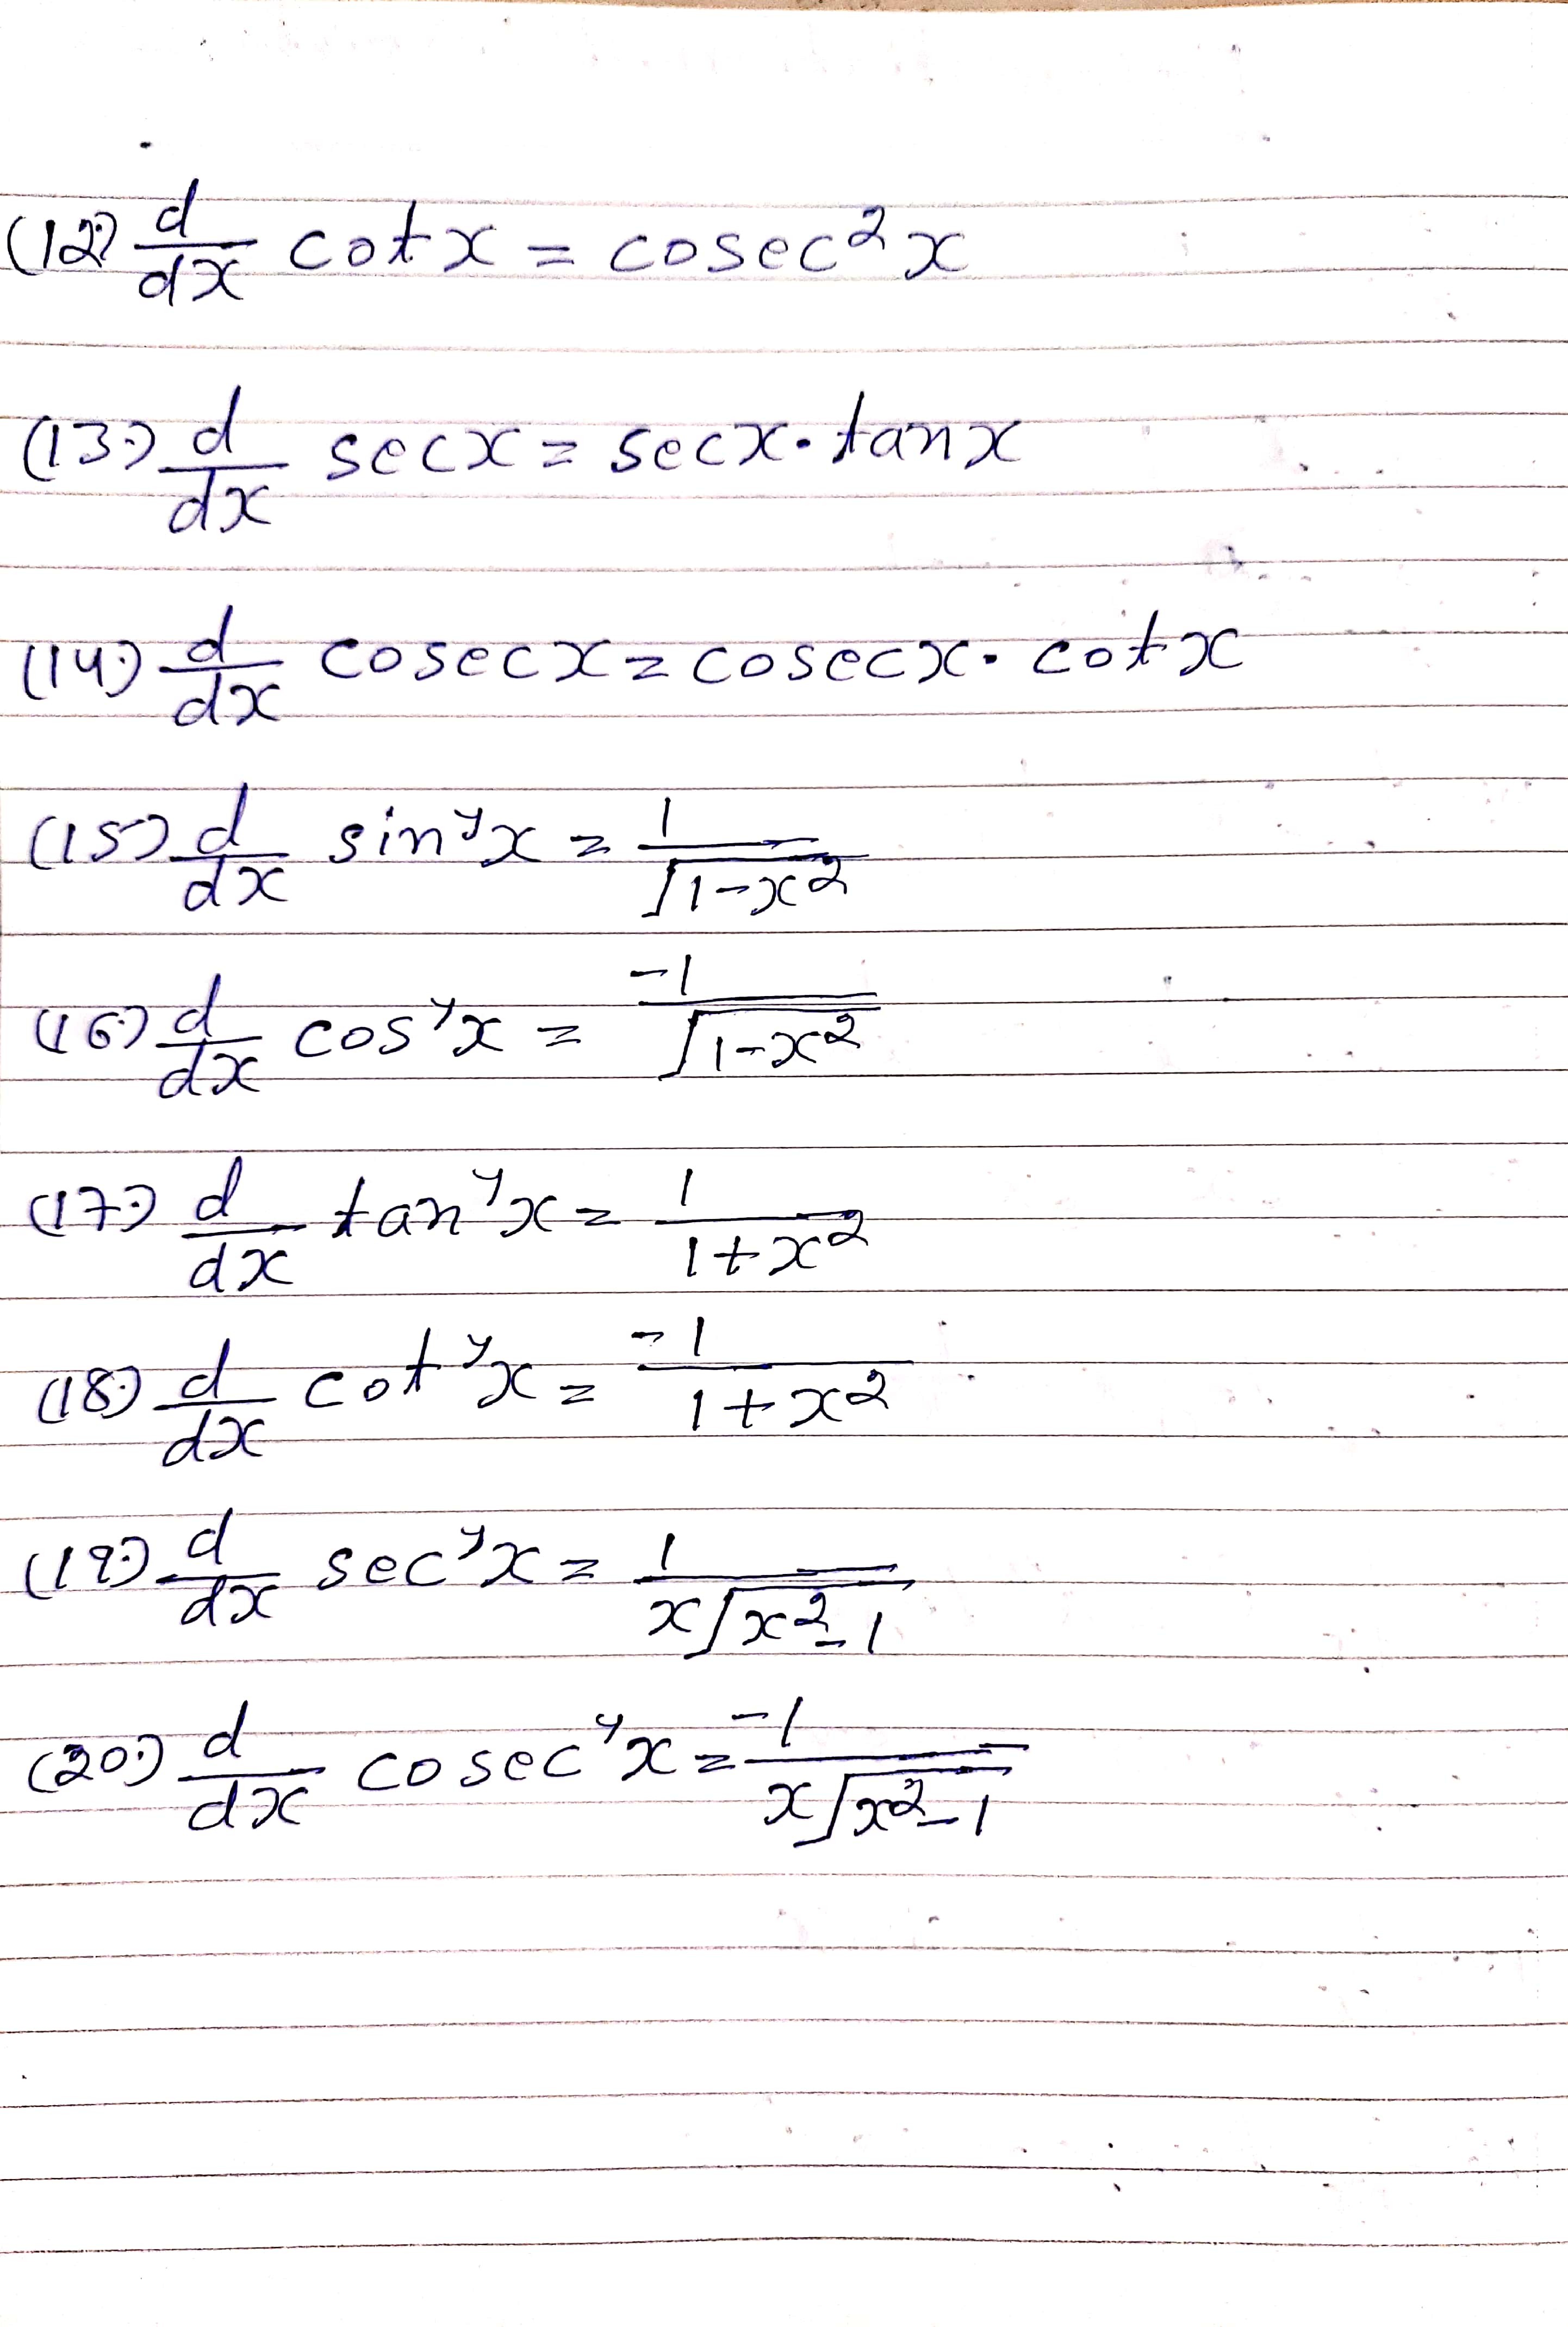 (12.) d/dx cot x = cosec² x
(13.) d/dx sec x = sec x · tan x
(14.) d/dx cosec x = cosec x · cot x
(15) d/dx sin⁻¹x = 1/√(1-x²)
(16.) d/dx cos⁻¹x = -1/√(1-x²)
(17.) d/dx tan⁻¹x = 1/(1+x²)
(18.) d/dx cot⁻¹x = -1/(1+x²)
(19.) d/dx sec⁻¹x = 1/(x√(x²-1))
(20.) d/dx cosec⁻¹x = -1/(x√(x²-1))